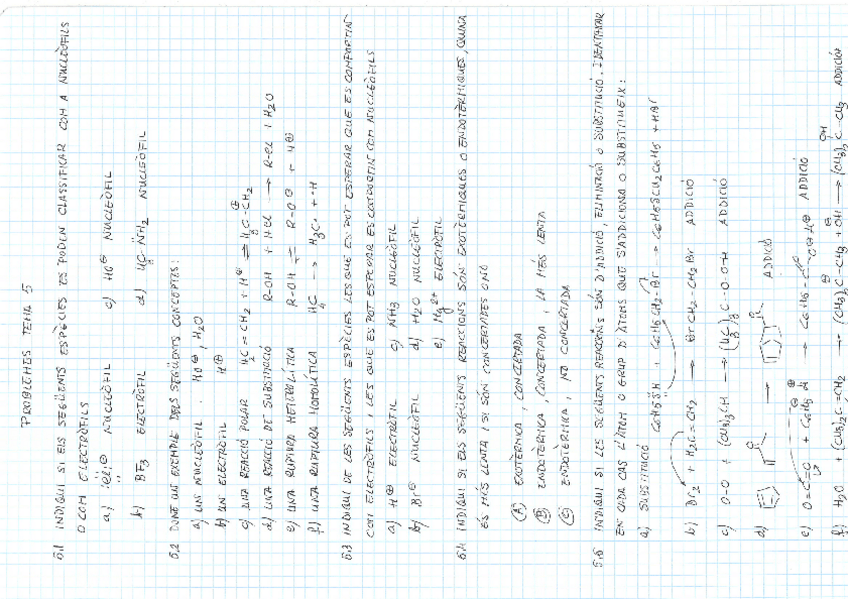 PROBLEMES TEMA 5
5.1 INDIQUI SI ELS SEGÜENTS ESPÈCIES ES PODEN CLASSIFICAR COM A NUCLEÒFILS
O COM ELECTRÒFILS
a) :Cl:⊖ NUCLEÒFIL c) HO⊖ NUCLEÒFIL
b) BF3 ELECTRÒFIL d) NH2 NUCLEÒFIL
5.2 DONI UN EXEMPLE DELS SEGÜENTS CONCEPTES:
a) UN NUCLEÒFIL : HO⊖, H2O
b) UN ELECTRÒFIL H⊕
c) UNA REACCIÓ POLAR H2C=CH2 + H⊕ ⇌ H3C-CH2⊕
d) UNA REACCIÓ DE SUBSTITUCIÓ R-OH + HCl → R-Cl + H2O
e) UNA RUPTURA HETEROLÍTICA R-OH ⇌ R-O⊖ + H⊕
f) UNA RUPTURA HOMOLÍTICA → H3C• + •H
5.3 INDIQUI DE LES SEGÜENTS ESPÈCIES LES QUE ES POT ESPERAR QUE ES COMPORTIN
COM ELECTRÒFILS I LES QUE ES POT ESPERAR ES COMPORTIN COM NUCLEÒFILS
a) H⊕ ELECTRÒFIL c) NH3 NUCLEÒFIL
b) Br⊖ NUCLEÒFIL d) H2O NUCLEÒFIL
e) Hg2+ ELECTRÒFIL
5.4 INDIQUI SI ELS SEGÜENTS REACCIONS SÓN EXOTÈRMIQUES O ENDOTÈRMIQUES, QUINA
ÉS MÉS LENTA I SI SÓN CONCERTADES O NO
(A) EXOTÈRMICA, CONCERTADA
(B) ENDOTÈRMICA, CONCERTADA, LA MÉS LENTA
(C) ENDOTÈRMICA, NO CONCERTADA
5.5 INDIQUI SI LES SEGÜENTS REACCIONS SÓN D'ADDICIÓ, ELIMINACIÓ O SUBSTITUCIÓ. IDENTIFICAR
EN CADA CAS L'ÀTOM O GRUP D'ÀTOMS QUE S'ADDICIONA O SUBSTITUEIX:
a) SUBSTITUCIÓ C6H5SH + C6H5CH2-Br → C6H5SCH2C6H5 + HBr
b) Br2 + H2C=CH2 → BrCH2-CH2Br ADDICIÓ
c) O-O + (CH3)3CH → (H3C)3C-O-O-H ADDICIÓ
d) → ADDICIÓ
e) O=C=O + → ADDICIÓ
f) H2O + (CH3)2C=CH2 → (CH3)2C-CH3 + OH → (CH3)2C-CH3 OH ADDICIÓ